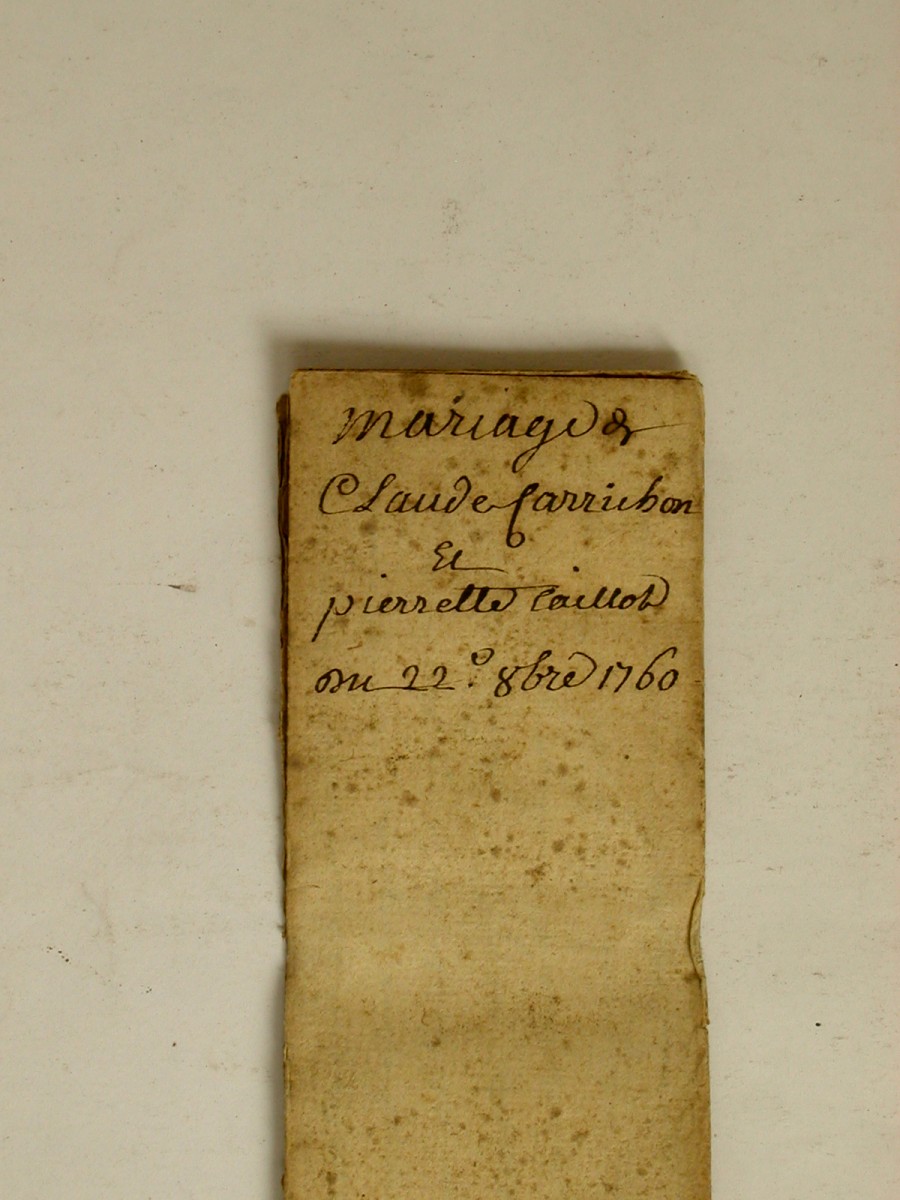 mariage de
Claude Carrichon
Et
pierrette Caillot
Du 22.e 8bre 1760